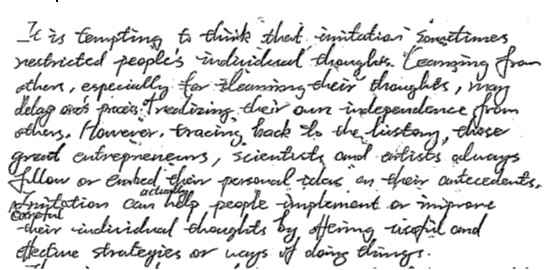 It is tempting to think that imitation sometimes
restricted people's individual thoughts. Learning from
others, especially for learning their thoughts, may
delay one's process of realizing their own independence from
others. However, tracing back to the history, those
great entrepreneurs, scientists and artists always
follow or embed their personal ideas on their antecedents.
Imitation can actually help people implement or improve
their individual thoughts by offering useful and
effective strategies or ways of doing things.